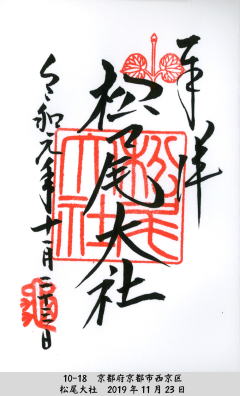 奉拝
松尾大社
松尾大社
令和元年十一月二十三日
10-18 京都府京都市西京区
松尾大社 2019年11月23日